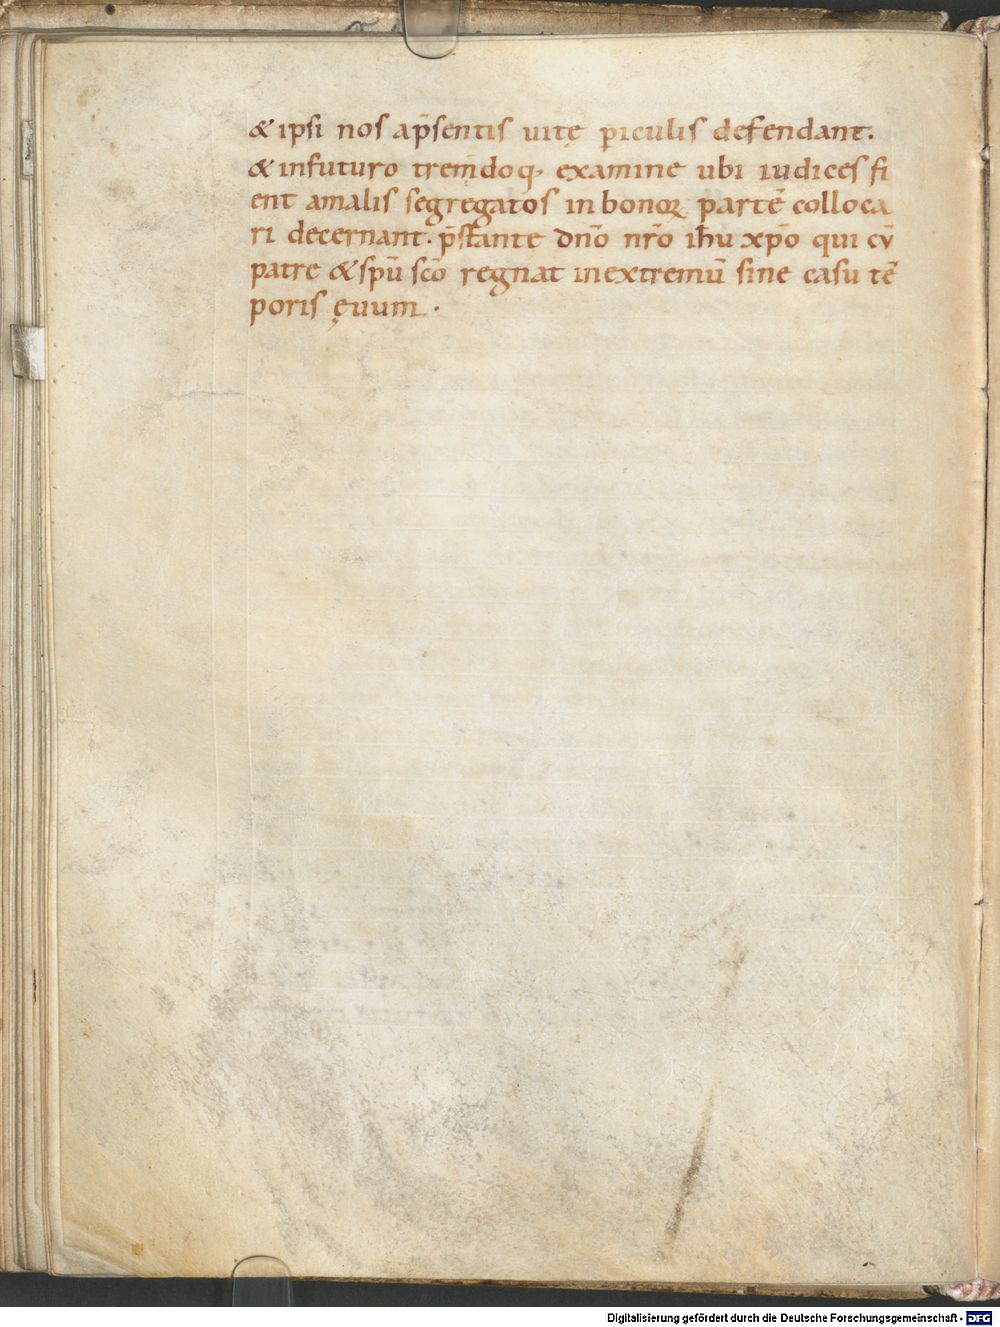 & ipsi nos ap̄sentis uitę ꝑiculis defendant.
& infuturo trem̄doq; examine ubi iudices fi
ent amalis segregatos in bonoꝝ partē colloca
ri decernant. p̄stante dn̄o nr̄o ih̄u xp̄o qui cū
patre & sp̄u sc̄o regnat inextremū sine casu tē
poris ęuum.
Digitalisierung gefördert durch die Deutsche Forschungsgemeinschaft - DFG